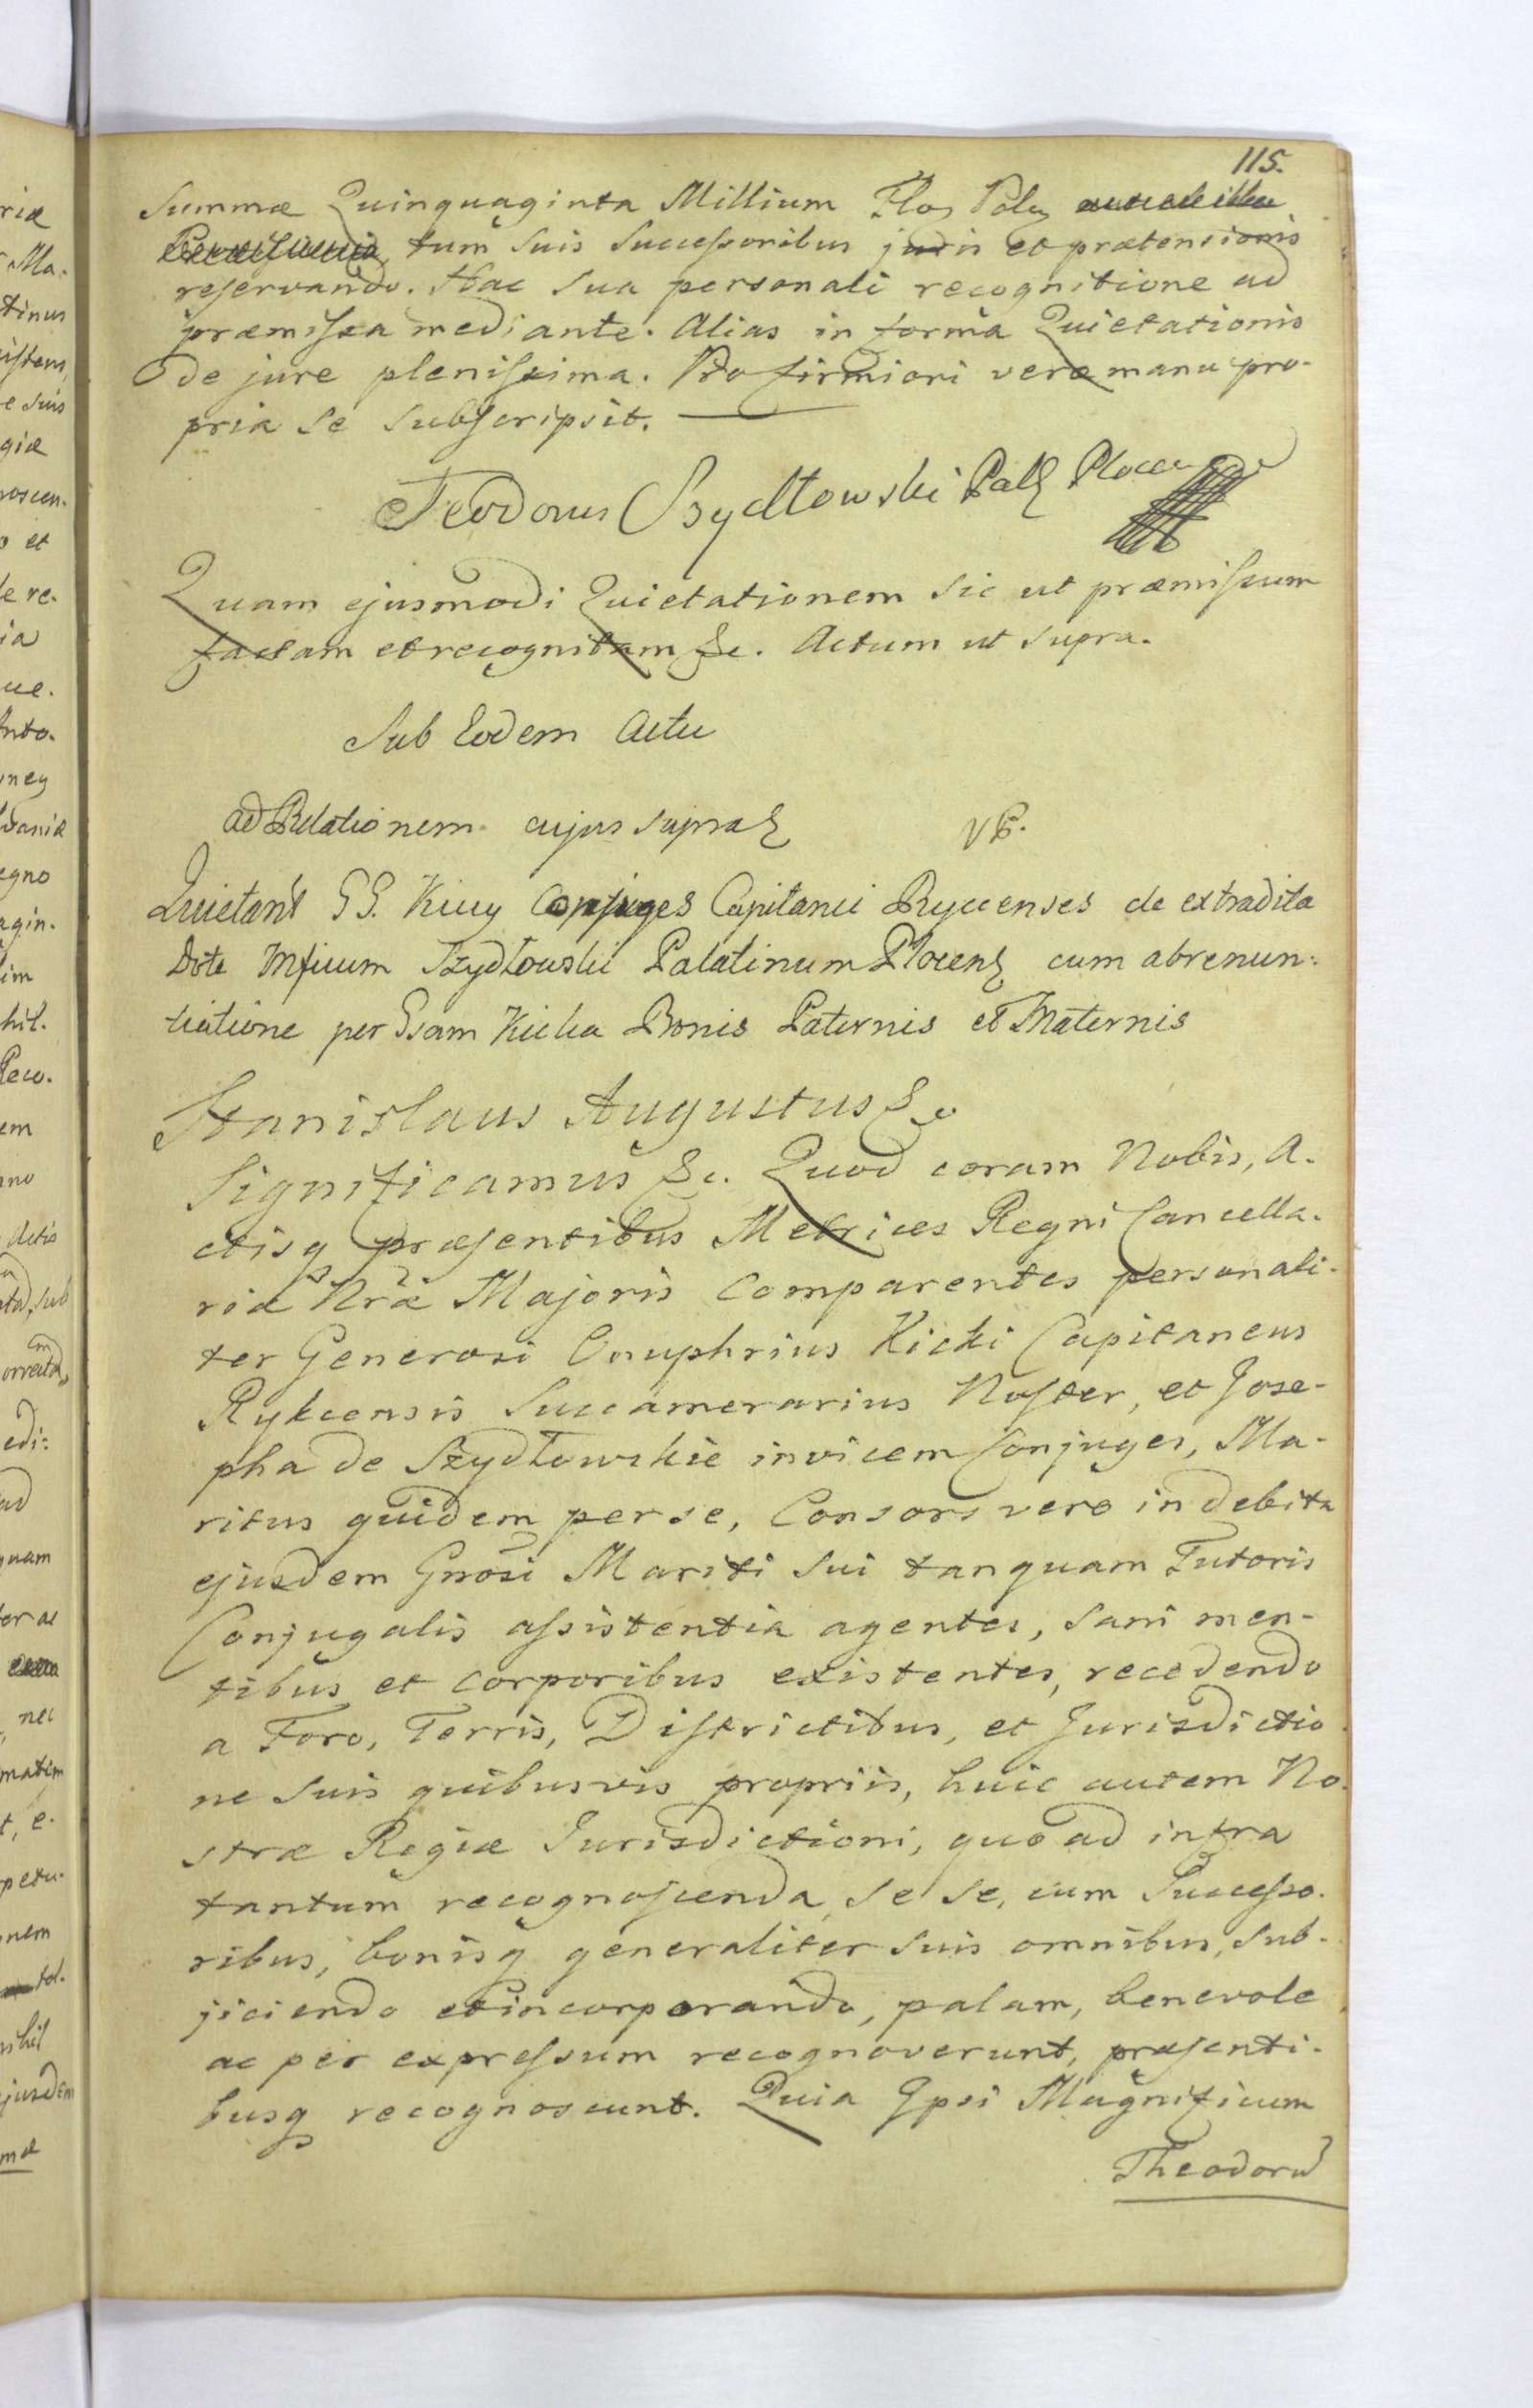 115.
Summæ Quinquaginta Millium Flos Pols
tum suis Successoribus juris et prætensionis
reservando. Hac sua personali recognitione ad
præmissa mediante. Alias in forma Quietationis
de jure plenissima. Pro firmiori vero manu pro-
pria se subscripsit.
Teodorus Szydłowski Palz Plocen
Quam ejusmodi Quietationem sic ut præmissum
factam et recognitam &c. Actum ut supra.
Sub Eodem Actu
ad Relationem cujus supra
Quietant GG. Kiccy Conjuges Capitanei Ryccenses de extradita
Dote Mficum Szydłowski Palatinum Plocenz cum abrenun:
tiatione per Gsam Kicka Bonis Paternis et Maternis
Stanislaus Augustus &c
Significamus &c. Quod coram Nobis, A-
ctisq præsentibus Metrices Regni Cancella-
riæ Nræ Majoris Comparentes personali-
ter Generosi Onuphrius Kicki Capitaneus
Rykcensis Succamerarius Noster, et Jose-
pha de Szydłowskie invicem Conjuges, Ma-
ritus quidem per se, Consors vero in debita
ejusdem Gnosi Mariti sui tanquam Tutoris
Conjugalis assistentia agentes, sani men-
tibus et corporibus existentes, recedendo
a Foro, Terris, Districtibus, et Jurisdictio
ne suis quibusvis propriis, huic autem No-
stræ Regiæ Jurisdictioni, quo ad infra
tantum recognoscenda, se se, cum Successo-
ribus, bonisq generaliter suis omnibus, sub-
jiciendo et incorporando, palam, benevole
ac per expressum recognoverunt, præsenti-
busq recognoscunt. Quia Ipsi Magnificum
Theodorũ